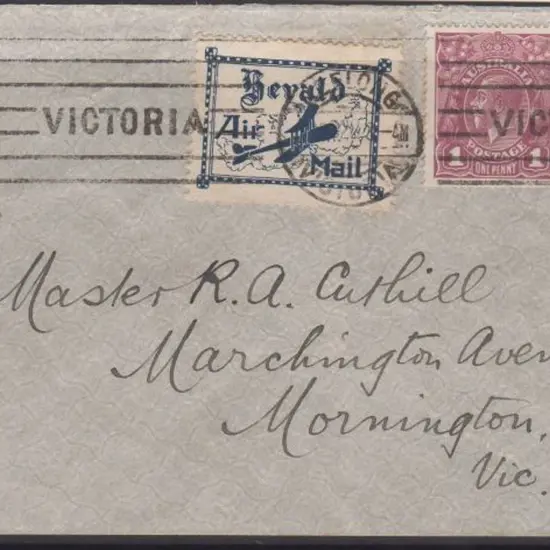 VICTORIA
Herald
Air
Mail
GEELONG
AM
VICTORIA
AUSTRALIA
VIC
1 POSTAGE 1
ONE PENNY
Master R. A. Cuthill
Marchington Aven
Mornington,
Vic.